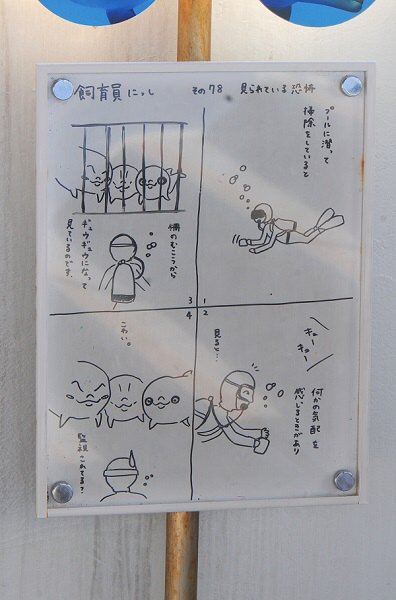 飼育員にっし
その78
見られている恐怖
プールに潜って
掃除をしていると
1
キュー
キュー
何かの気配を
感じるときがあり
見ると…
2
柵のむこうから
ギュウギュウになって
見ているのです。
3
こわい。
監視されてる?
4